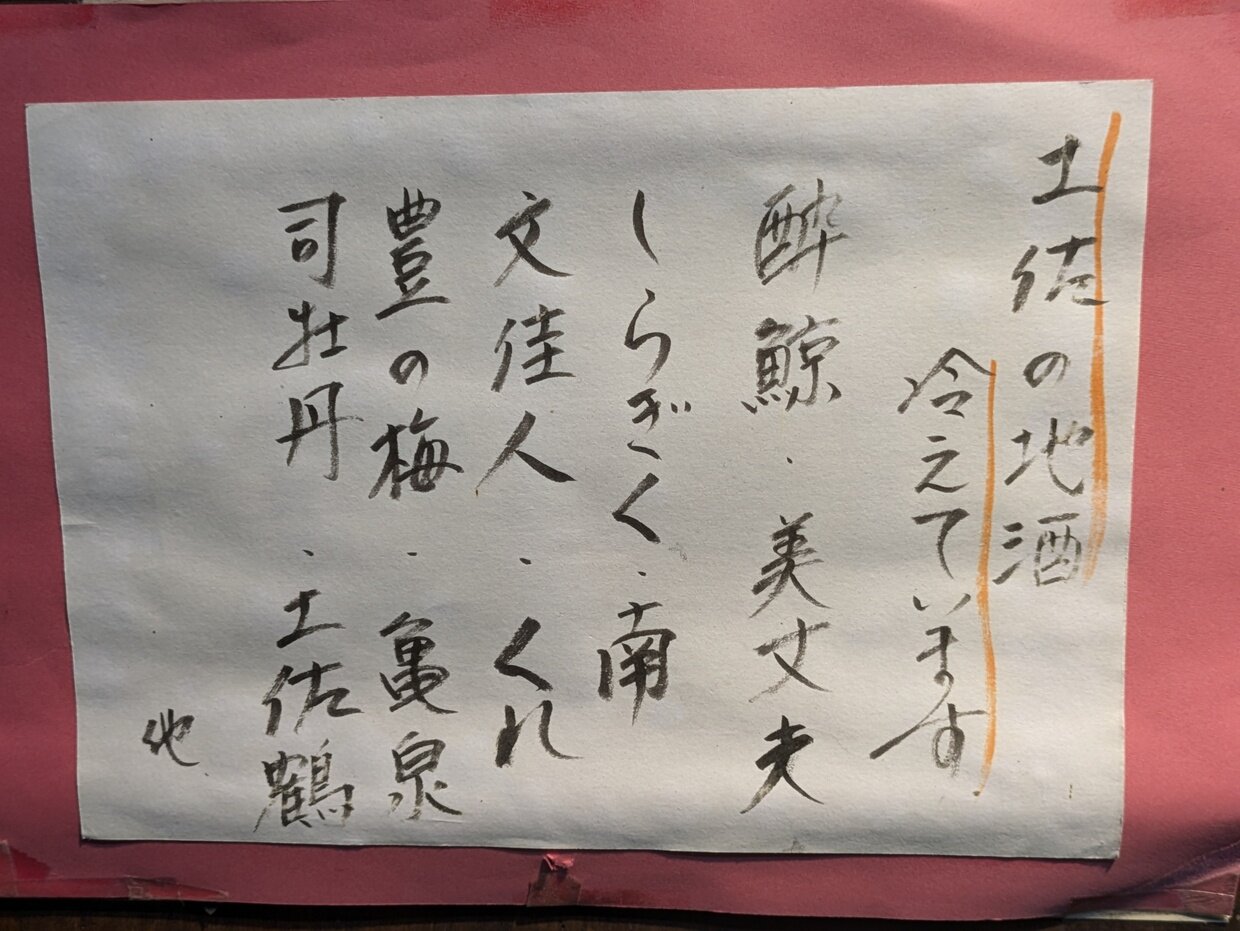 土佐の地酒
冷えています
酔鯨・美丈夫
しらぎく・南
文佳人・くれ
豊の梅・亀泉
司牡丹・土佐鶴
他